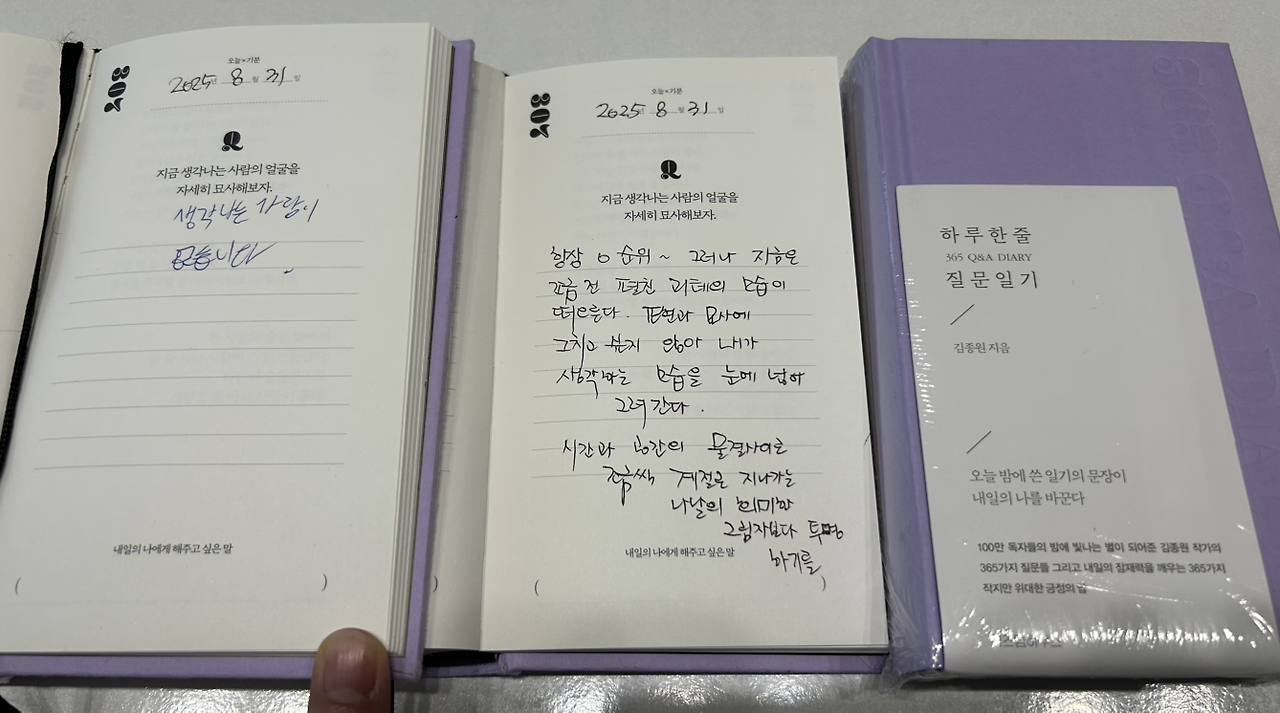 208
오늘×기분
2025년 8월 31일
Q
지금 생각나는 사람의 얼굴을
자세히 묘사해보자.
생각나는 사람이
없습니다.
내일의 나에게 해주고 싶은 말
( )
208
오늘×기분
2025년 8월 31일
Q
지금 생각나는 사람의 얼굴을
자세히 묘사해보자.
항상 0순위~ 그러나 지금은
조금 전 펼친 괴테의 모습이
떠오른다. 표현과 묘사에
그치고 싶지 않아 내가
생각하는 모습을 눈에 넣어
그려간다.
시간과 공간의 물결사이로
조금씩 계절은 지나가는
나날의 의미가
그림자보다 투명
하기를
내일의 나에게 해주고 싶은 말
( )
하루 한 줄
365 Q&A DIARY
질문 일기
김종원 지음
오늘 밤에 쓴 일기의 문장이
내일의 나를 바꾼다
100만 독자들의 밤에 빛나는 별이 되어준 김종원 작가의
365가지 질문들 그리고 내일의 잠재력을 깨우는 365가지
작지만 위대한 긍정의 밤